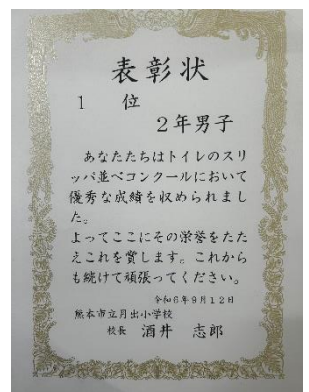 表彰状
1 位
2年男子
あなたたちはトイレのスリ
ッパ並べコンクールにおいて
優秀な成績を収められまし
た。
よってここにその栄誉をたた
えこれを賞します。これから
も続けて頑張ってください。
令和6年9月12日
熊本市立月出小学校
校長 酒井 志郎